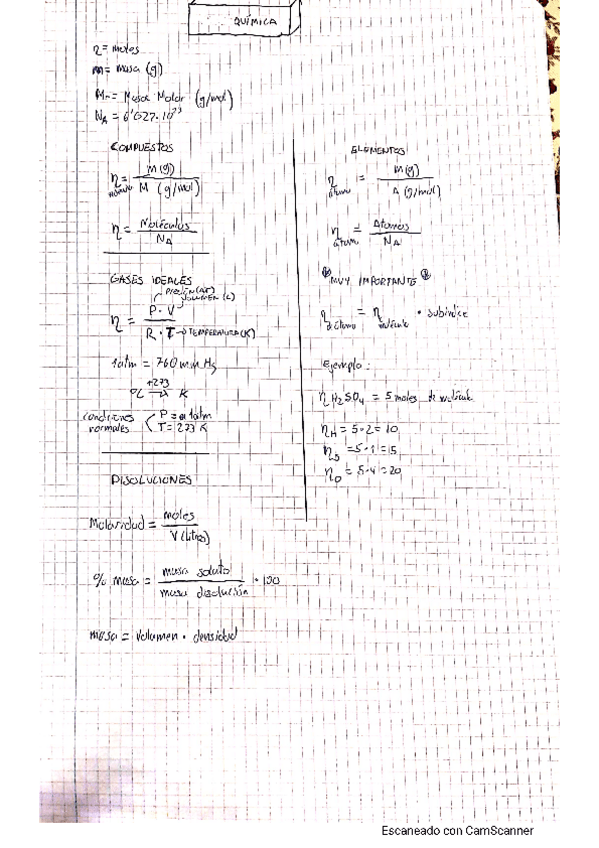 QUÍMICA
η = moles
m = masa (g)
Mm = Masa Molar (g/mol)
NA = 6'022·10²³
COMPUESTOS
η = M(g) / M (g/mol)
η = Moléculas / NA
GASES IDEALES
PRESIÓN (AT)
VOLUMEN (L)
η = P · V / R · T → TEMPERATURA (K)
1atm = 760 mm Hg
ºC +273 → K
condiciones normales P = 1atm
T = 273 K
DISOLUCIONES
Molaridad = moles / V (litros)
% masa = masa soluto / masa disolución · 100
masa = volumen · densidad
ELEMENTOS
η átomo = M(g) / A (g/mol)
η átomo = Átomos / NA
MUY IMPORTANTE
η átomo = η molécula · subíndice
Ejemplo:
η H2SO4 = 5 moles de molécula
ηH = 5·2 = 10
ηS = 5·1 = 5
ηO = 5·4 = 20
Escaneado con CamScanner